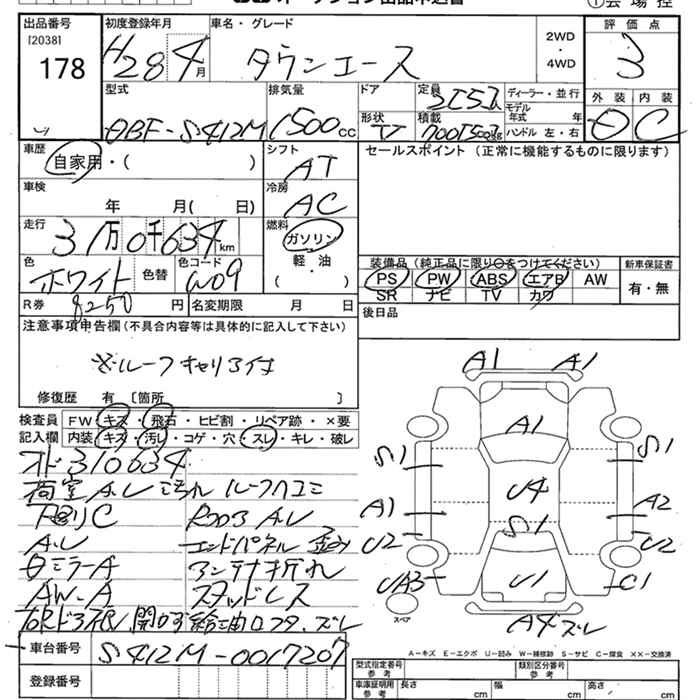 出品番号 初度登録年月 車名・グレード 2WD・4WD 評価点
[2038] 178 H28 4月 タウンエース 3
型式 排気量 ドア 定員 2(5)人 ディーラー・並行 外装 内装
ABF-S412M 1500cc 形状 V 積載 700(500)kg モデル年式 年 ハンドル 左・右 C
車歴 自家用・( ) シフト AT セールスポイント (正常に機能するものに限ります)
車検 年 月( 日) 冷房 AC
走行 31万0千634km 燃料 ガソリン・軽油 ( )
色 ホワイト 色替 色コード W09 装備品 (純正品に限り○をつけてください) 新車保証書
PS PW ABS エアB AW 有・無
SR ナビ TV カワ
R券 8250 円 名変期限 月 日 後日品
注意事項申告欄 (不具合内容等は具体的に記入して下さい)
※ルーフキャリア付
修復歴 有 〔箇所 〕
検査員 FW・キズ・飛石・ヒビ割・リペア跡・×要
記入欄 内装・キズ・汚レ・コゲ・穴・スレ・キレ・破レ
310634
荷室AU ルーフ
C AU
AU エンドパネル歪み
ミラーA アンテナ折れ
AW-A スタッドレス
開時給油口フタ、ズレ
車台番号 S412M-0017207
登録番号
A1 A1
A1
S1 S1
U4
A1 A2
S1
U2 U2
UA3 U1 C1
スペア A4ズレ
A-キズ E-エクボ U-凹み W-補修跡 S-サビ C-腐食 XX-交換済
型式指定番号 参考 類別区分番号 参考
車庫証明用 参考 長さ cm 幅 cm 高さ cm